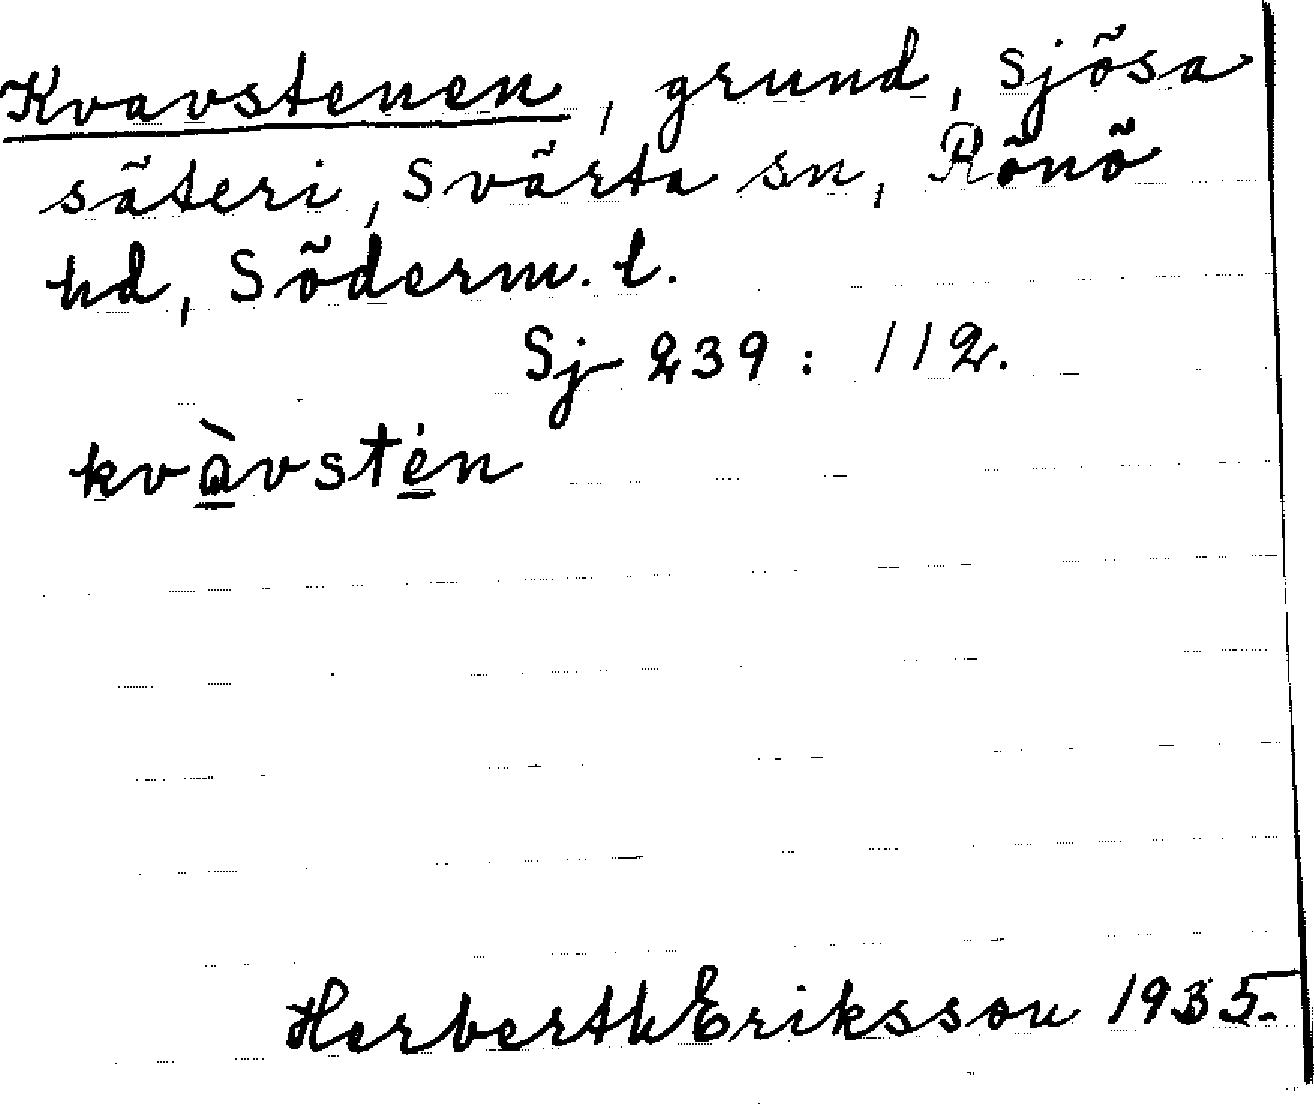 Kvavstenen, grund, Sjösa
säteri, Svärta sn, Rönö
hd, Söderm. l.
Sj 239 : 112.
kvàvstén
Herberth Eriksson 1935.